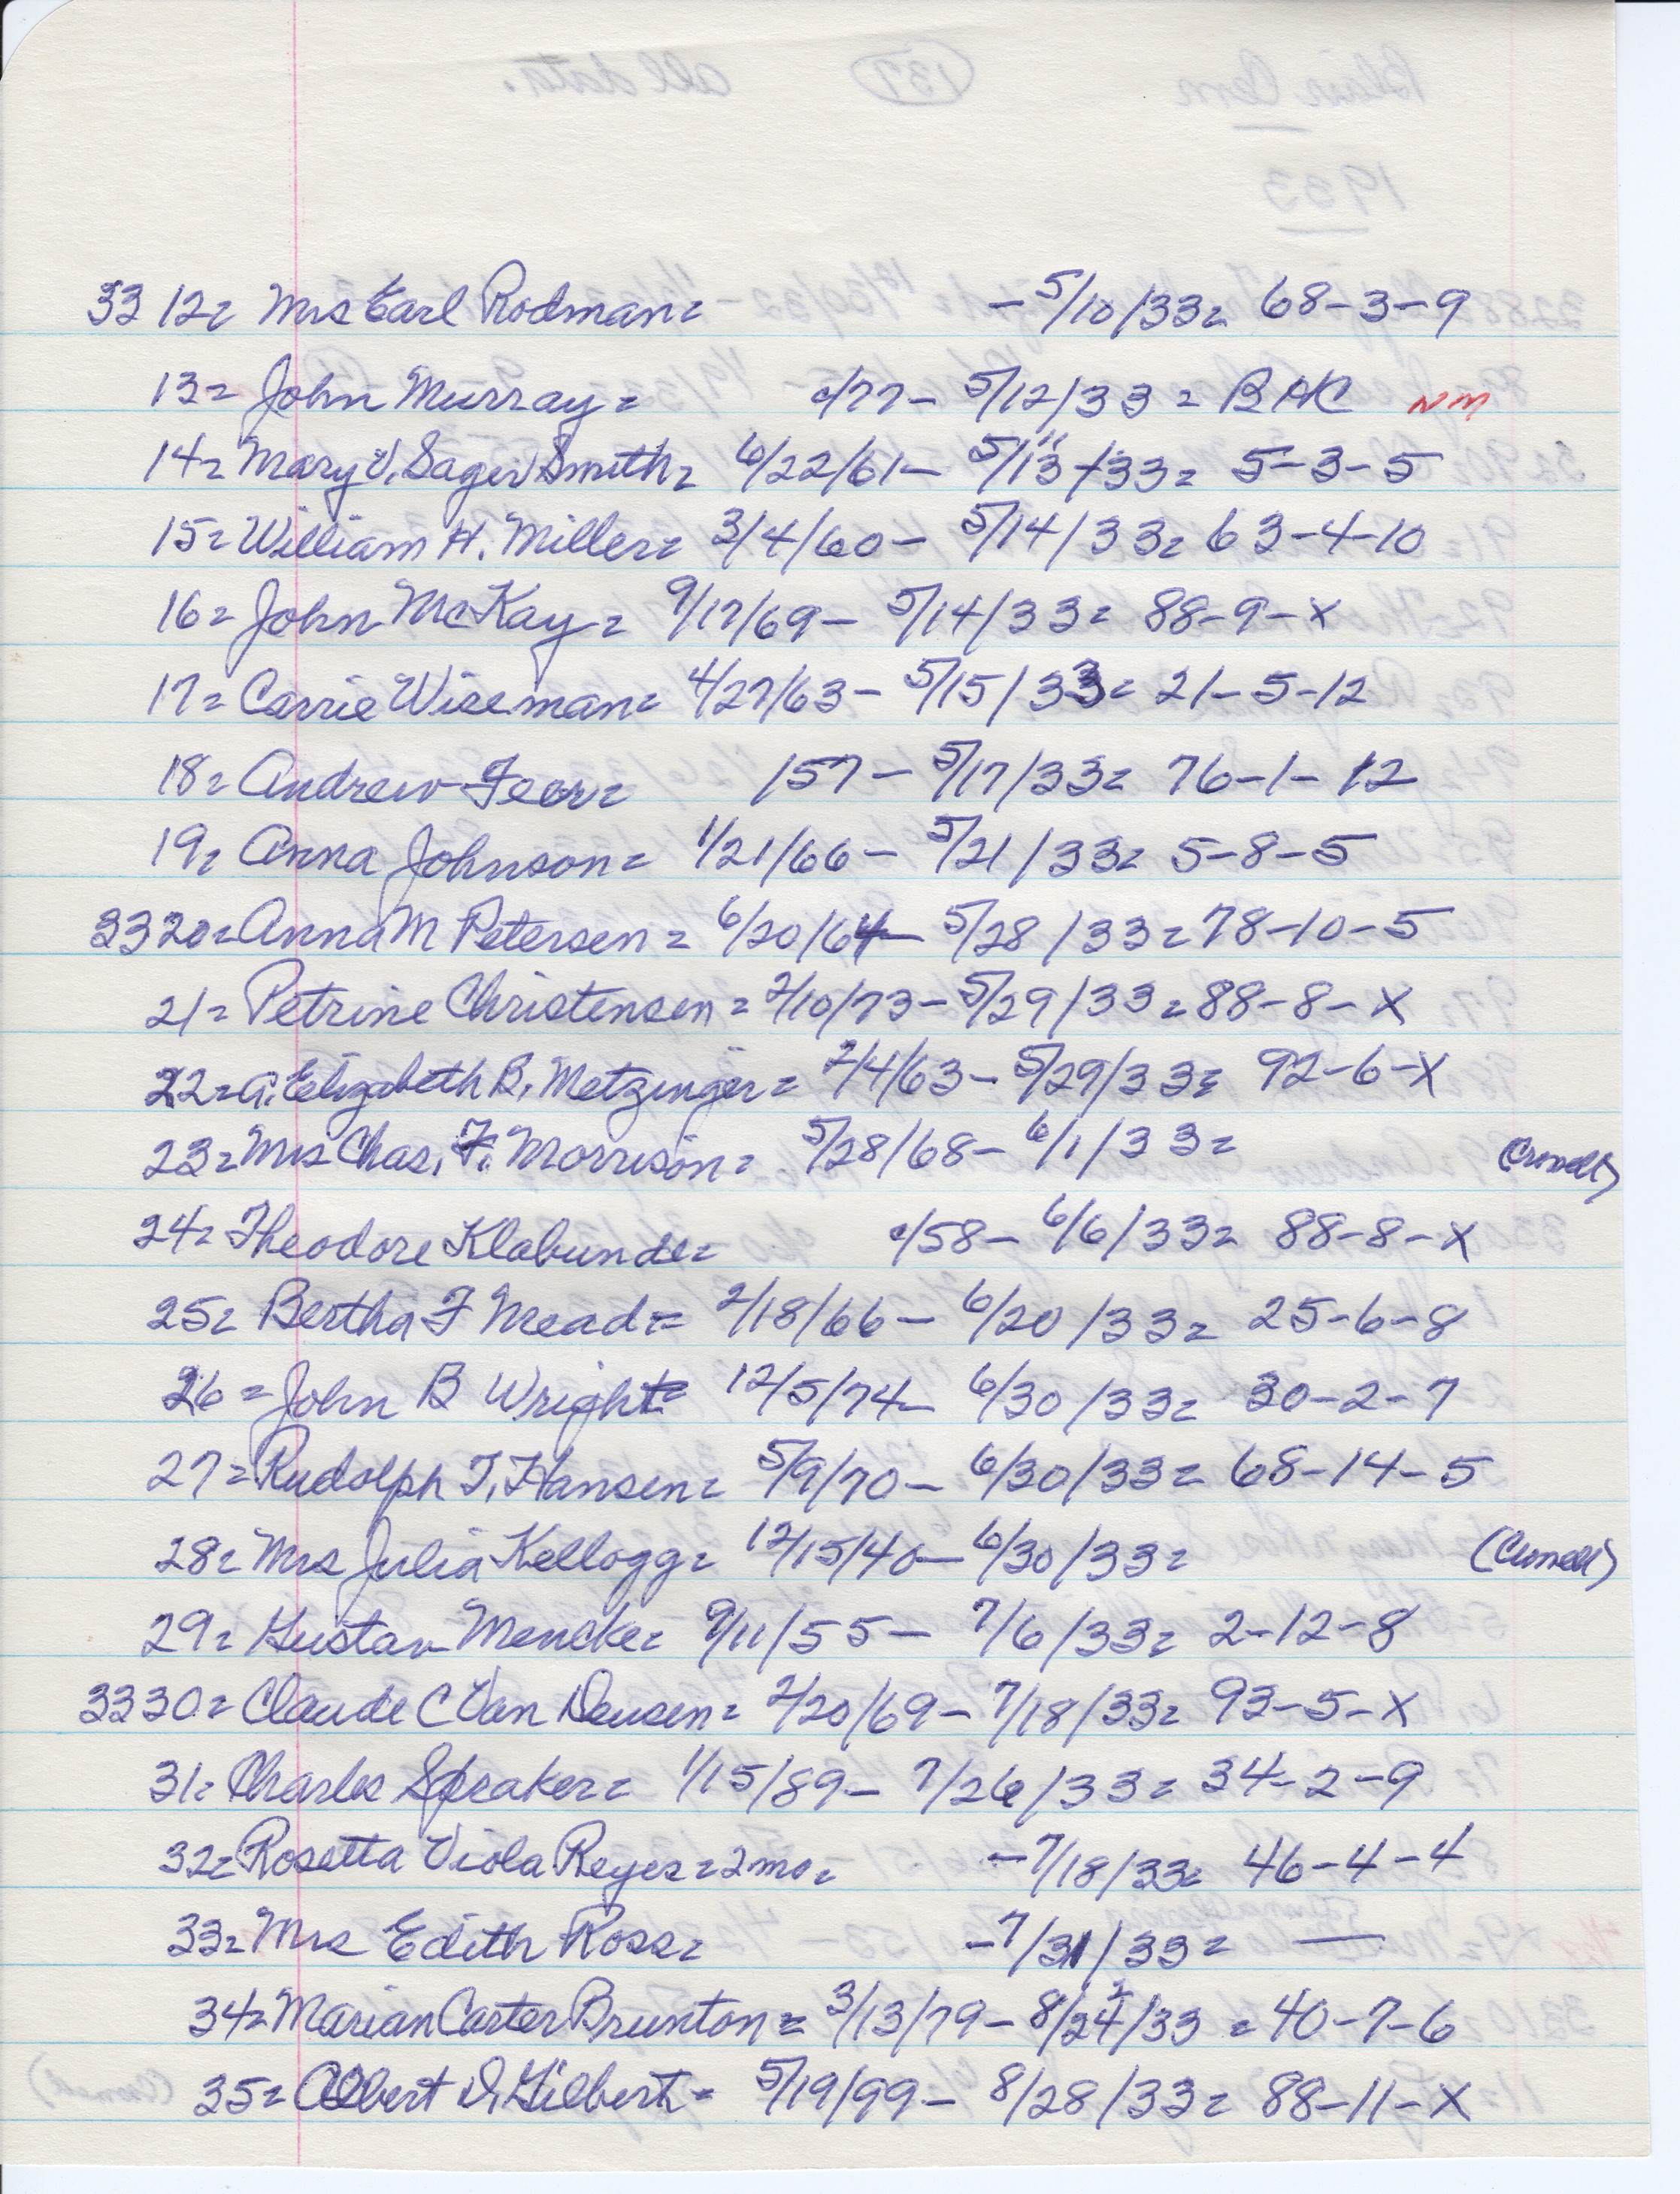 33 12= Mrs Earl Rodman= - 5/10/33= 68-3-9
13= John Murray= c/77- 5/12/33= BAK NM
14= Mary V. Sager Smith= 6/22/61- 5/13"/33= 5-3-5
15= William H. Miller= 3/4/60- 5/14/33= 63-4-10
16= John McKay= 9/17/69- 5/14/33= 88-9-X
17= Carrie Wiseman= 4/27/63- 5/15/33= 21-5-12
18= Andrew Feer= 157- 5/17/33= 76-1-12
19= Anna Johnson= 1/21/66- 5/21/33= 5-8-5
3320= Anna M Petersen= 6/20/64- 5/28/33= 78-10-5
21= Petrine Christensen= 2/10/73- 5/29/33= 88-8-X
22= A. Elizabeth B. Metzinger= 2/4/63- 5/29/33= 92-6-X
23= Mrs Chas. F. Morrison= 5/28/68- 6/1/33= (Cronell)
24= Theodore Klabunde= c/58- 6/6/33= 88-8-X
25= Bertha F Mead= 2/18/66- 6/20/33= 25-6-8
26= John B Wright= 12/5/74- 6/30/33= 30-2-7
27= Rudolph T. Hansen= 5/9/70- 6/30/33= 68-14-5
28= Mrs Julia Kellogg= 12/15/40- 6/30/33= (Cronell)
29= Gustav Mencke= 9/11/55- 7/6/33= 2-12-8
3330= Claude C Van Deusen= 2/20/69- 7/18/33= 93-5-X
31= Charles Speaker= 1/15/89- 7/26/33= 34-2-9
32= Rosetta Viola Reyes= 2mo= -7/18/33= 46-4-4
33= Mrs Edith Ross= -7/31/33= —
34= Marian Carter Brunton= 3/13/79- 8/24/33 2 = 40-7-6
35= Albert D. Gilbert= 5/19/99- 8/28/33= 88-11-X